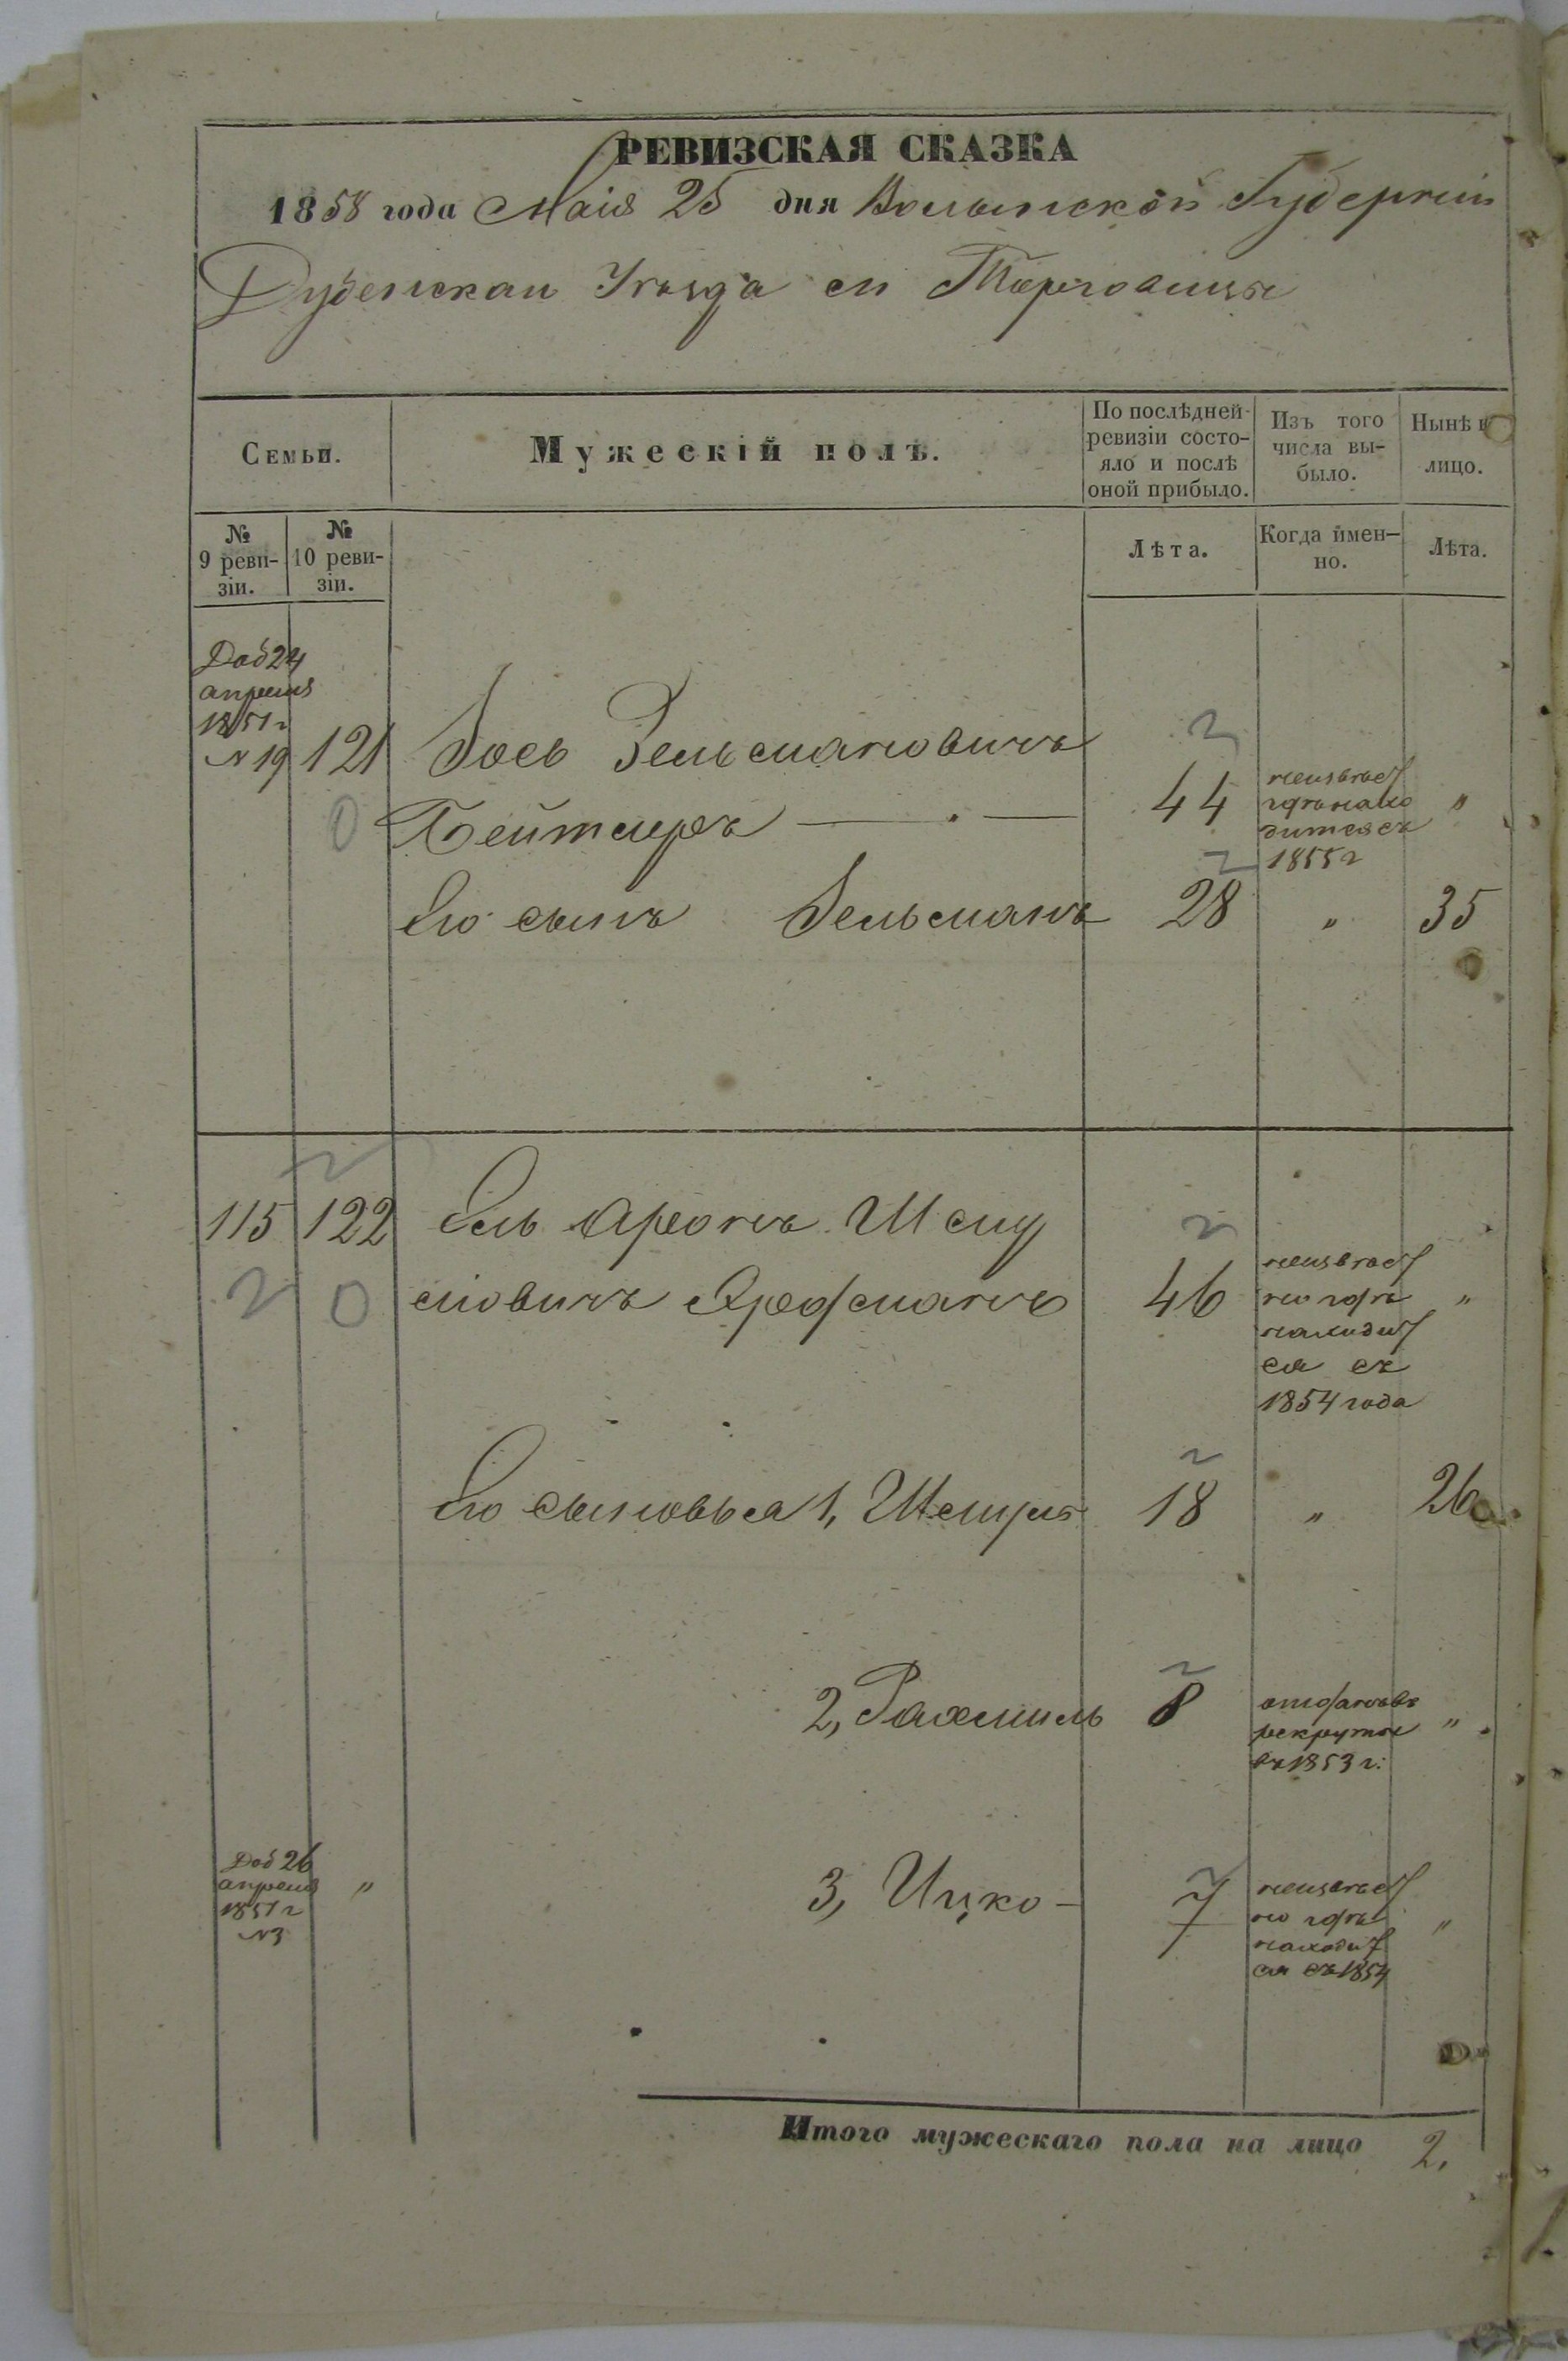 РЕВИЗСКАЯ СКАЗКА
1858 года Маія 25 дня Волынской Губерніи
Дубенскаго Уѣзда м Торговицы
Семьи.
Мужескій полъ.
По послѣдней ревизіи состо-
яло и послѣ
оной прибыло.
Изъ того
числа вы-
было.
Нынѣ
лицо.
№
9 реви-
зіи.
№
10 реви-
зіи.
Лѣта.
Когда имен-
но.
Лѣта.
Доб 24
апреля
1851 г
№ 19
121
Зельмановичъ
Бейтлеръ
44
неизвѣст
гдѣ нахо
дится съ
1855 г
"
Его сынъ Зельманъ
28
"
35
115
122
Ель Аронъ Шму
левичъ
46
неизвѣст
но гдѣ
находит
ся съ
1854 года
"
Его сыновья 1, Шмуль
18
"
26
2, Рахмиль
8
отданъ въ
рекруты
въ 1853 г:
"
Доб 26
апреля
1851 г
№3
"
3, Ицко -
7
неизвѣст
но гдѣ
находит
ся съ 1854
"
Итого мужескаго пола на лицо 2.